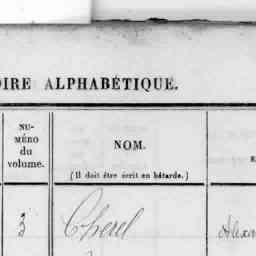 OIRE ALPHABÉTIQUE.
NU-
MÉRO
du
volume.
NOM.
(Il doit être écrit en bâtarde.)
3 Cherel Alexa